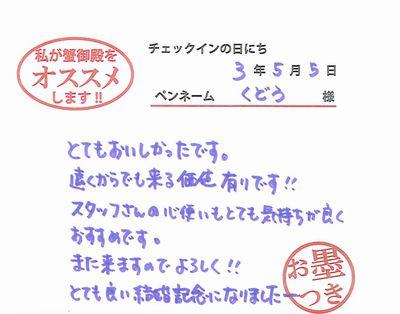 私が蟹御殿を
オススメ
します!!
チェックインの日にち
3年5月5日
ペンネーム くどう 様
とてもおいしかったです。
遠くからでも来る価値有りです!!
スタッフさんの心使いもとても気持ちが良く
おすすめです。
また来ますのでよろしく!!
とても良い結婚記念になりましたー
お墨つき